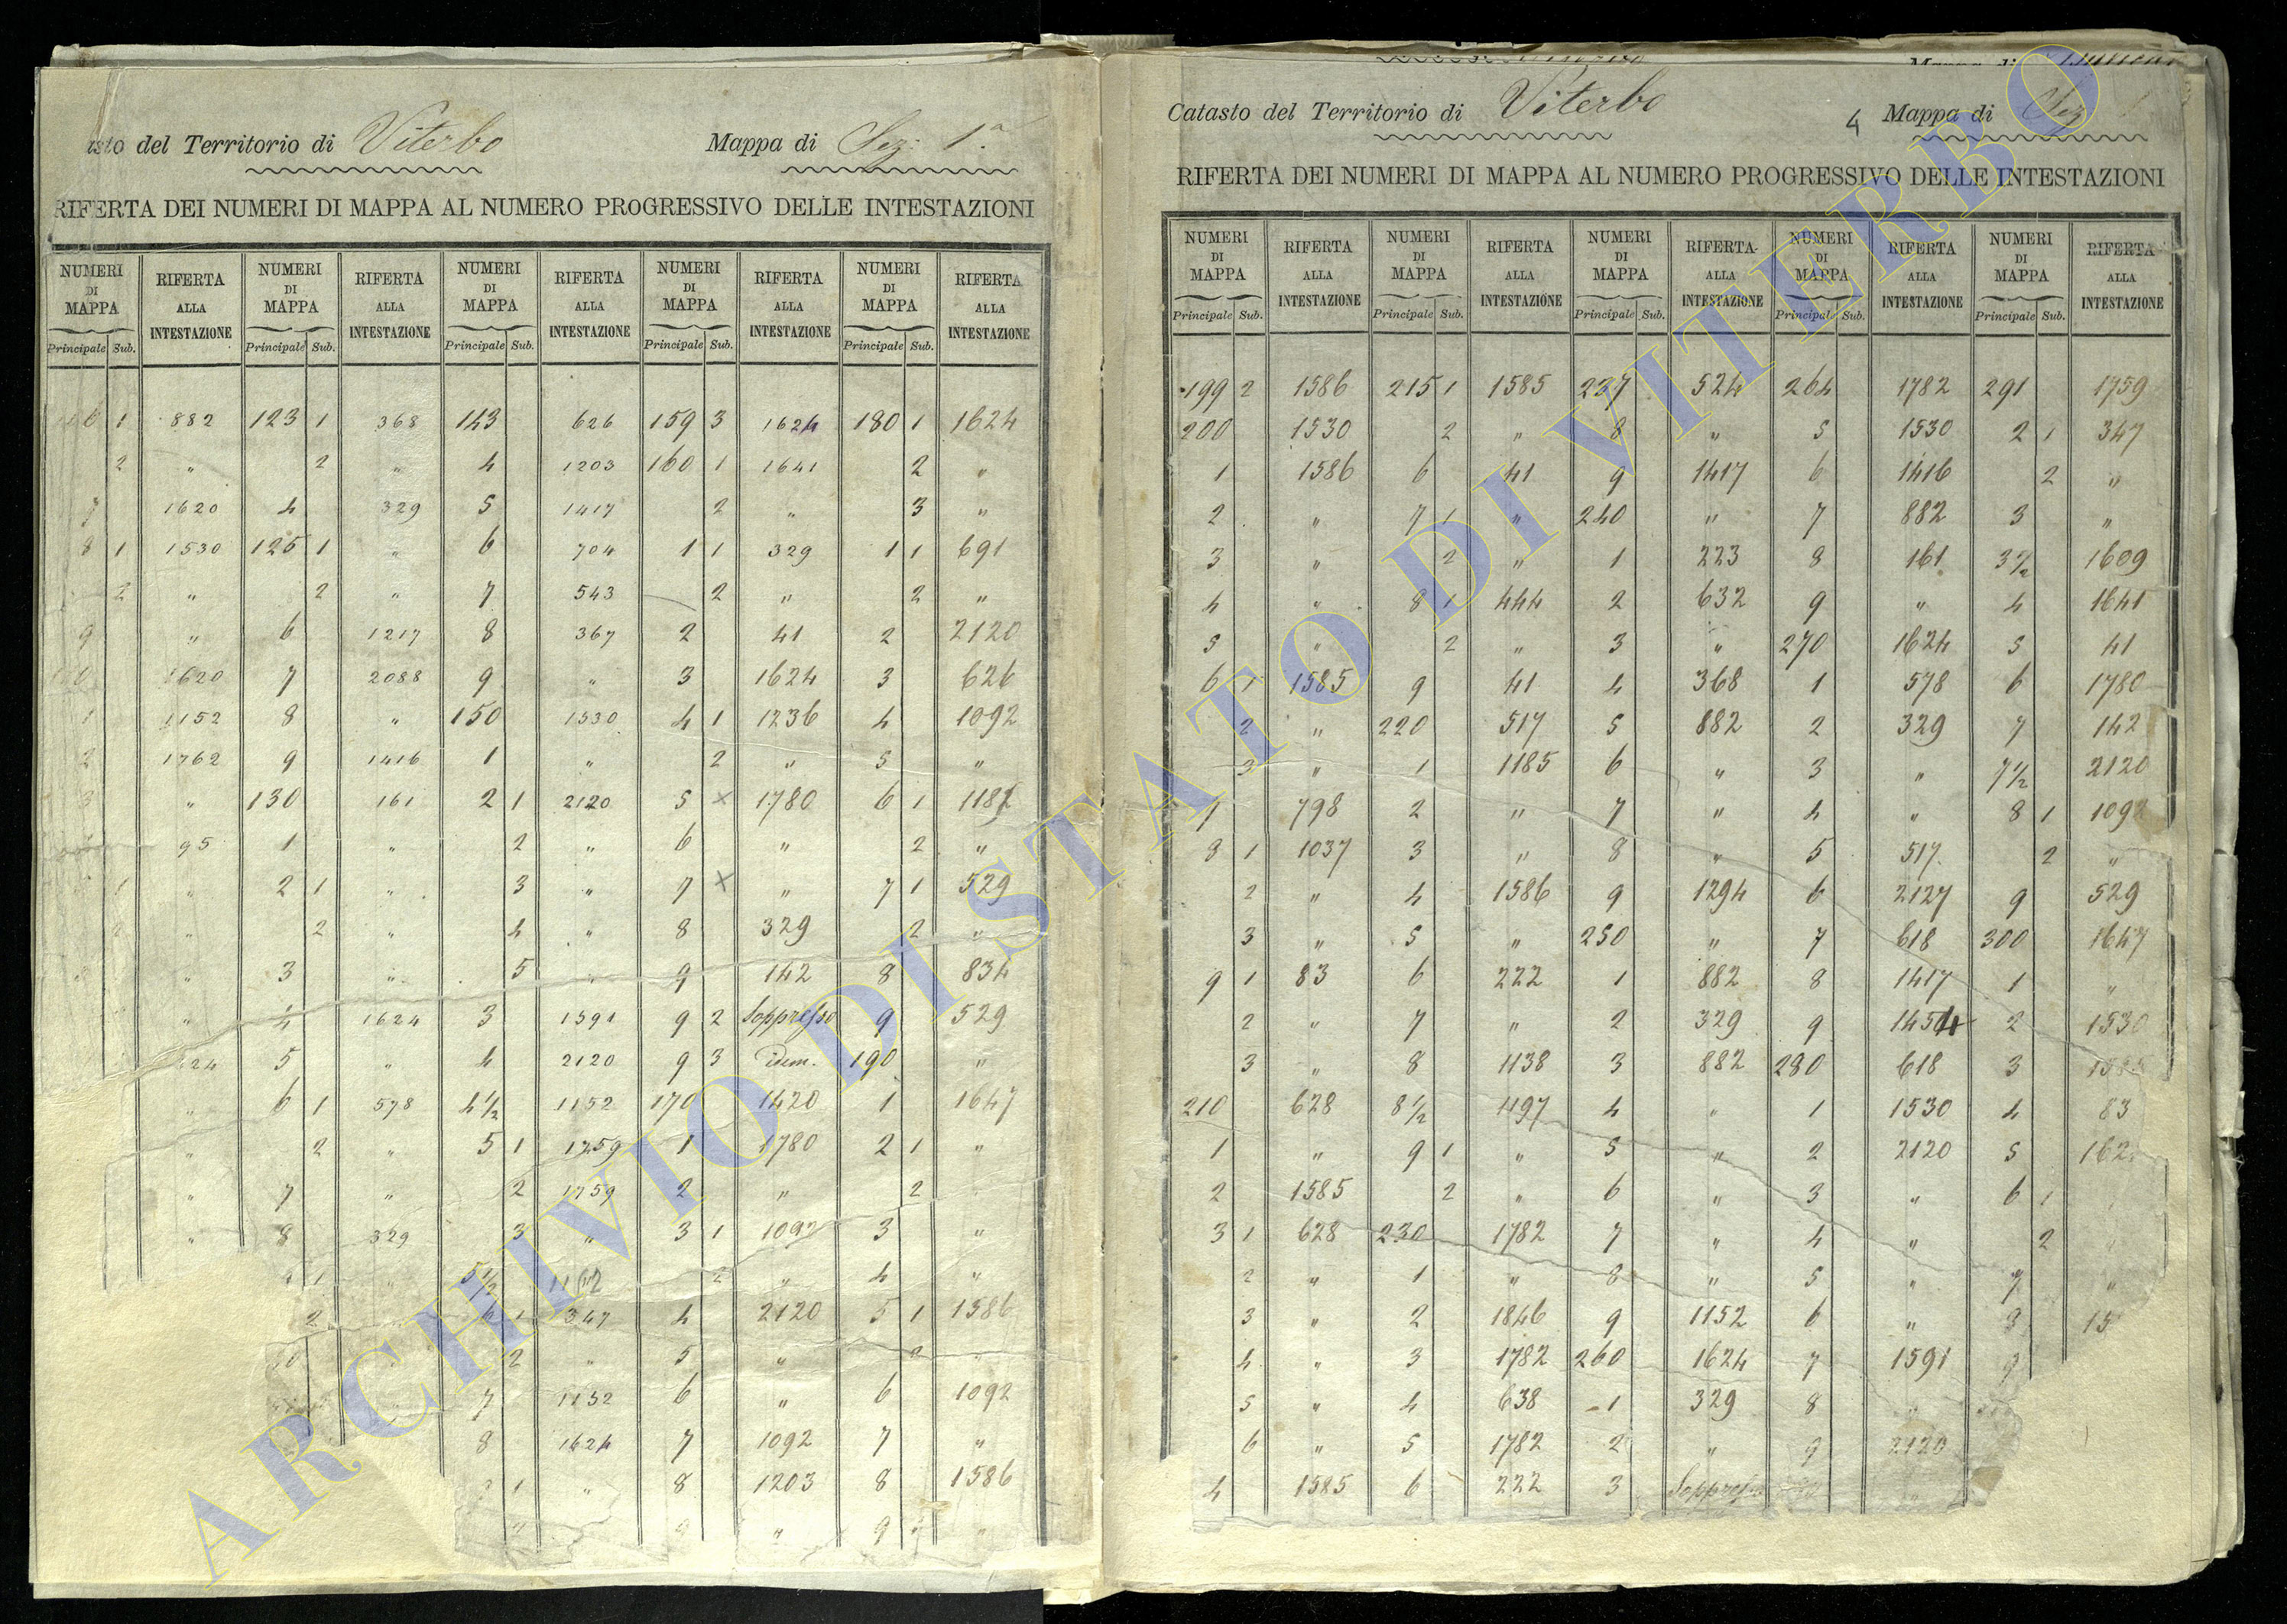 isto del Territorio di Viterbo Mappa di Sez: 1.a
RIFERTA DEI NUMERI DI MAPPA AL NUMERO PROGRESSIVO DELLE INTESTAZIONI
NUMERI DI MAPPA RIFERTA ALLA INTESTAZIONE NUMERI DI MAPPA RIFERTA ALLA INTESTAZIONE NUMERI DI MAPPA RIFERTA ALLA INTESTAZIONE NUMERI DI MAPPA RIFERTA ALLA INTESTAZIONE NUMERI DI MAPPA RIFERTA ALLA INTESTAZIONE
Principale Sub. Principale Sub. Principale Sub. Principale Sub. Principale Sub.
6 1 882 123 1 368 143 626 159 3 1624 180 1 1624
2 " 2 " 4 1203 160 1 1641 2 "
7 1620 4 329 5 1417 2 " 3 "
8 1 1530 125 1 " 6 704 1 1 329 1 1 691
2 " 2 " 7 543 2 " 2 "
9 " 6 1217 8 367 2 41 2 2120
1620 7 2088 9 " 3 1624 3 626
1 1152 8 " 150 1530 4 1 1236 4 1092
2 1762 9 1416 1 " 2 " 5 "
3 " 130 161 2 1 2120 5 × 1780 6 1 1182
95 1 " 2 " 6 " 2 "
1 " 2 1 " 3 " 7 × " 7 1 529
2 " 2 " 4 " 8 329 2 "
" 3 " 5 " 9 142 8 834
" 4 1624 3 1591 9 2 Soppresso 9 529
5 " 4 2120 9 3 idem. 190 "
" 6 1 578 4 1/2 1152 170 1420 1 1647
" 2 " 5 1 1759 1 1780 2 1 "
" 7 " 2 1759 2 " 2
" 8 329 3 " 3 1 1092 3 "
1 " 5 1/2 2 " 4 "
2 6 1 347 4 2120 5 1 1586
2 " 5 " 2 "
7 1152 6 " 6 1092
8 1624 7 1092 7 "
1 " 8 1203 8 1586
9 " 9 "
Catasto del Territorio di Viterbo 4 Mappa di Sez
RIFERTA DEI NUMERI DI MAPPA AL NUMERO PROGRESSIVO DELLE INTESTAZIONI
NUMERI DI MAPPA RIFERTA ALLA INTESTAZIONE NUMERI DI MAPPA RIFERTA ALLA INTESTAZIONE NUMERI DI MAPPA RIFERTA ALLA INTESTAZIONE NUMERI DI MAPPA RIFERTA ALLA INTESTAZIONE NUMERI DI MAPPA RIFERTA ALLA INTESTAZIONE
Principale Sub. Principale Sub. Principale Sub. Principale Sub. Principale Sub.
199 2 1586 215 1 1585 237 524 264 1782 291 1759
200 1530 2 " 8 " 5 1530 2 1 347
1 1586 6 41 9 1417 6 1416 2 "
2 " 7 1 " 240 " 7 882 3 "
3 " 2 " 1 223 8 161 3 1/2 1609
4 " 8 1 444 2 632 9 " 4 1641
5 " 2 " 3 " 270 1624 5 41
6 1 1585 9 41 4 368 1 578 6 1780
2 " 220 517 5 882 2 329 7 142
3 " 1 1185 6 " 3 " 7 1/2 2120
7 798 2 " 7 " 4 " 8 1 1092
8 1 1037 3 " 8 " 5 517 2 "
2 " 4 1586 9 1294 6 2127 9 529
3 " 5 " 250 " 7 618 300 1647
9 1 83 6 222 1 882 8 1417 1 "
2 " 7 " 2 329 9 1454 2 1530
3 " 8 1138 3 882 280 618 3
210 628 8 1/2 1197 4 " 1 1530 4 83
1 " 9 1 " 5 " 2 2120 5 162
2 1585 2 " 6 " 3 " 6 1
3 1 628 230 1782 7 " 4 " 2
2 " 1 " 8 " 5 " 7 "
3 " 2 1846 9 1152 6 " 15
4 " 3 1782 260 1624 7 1591
5 " 4 638 1 329 8
6 " 5 1782 2 " 9 2120
4 1585 6 222 3 Soppresso
ARCHIVIO DI STATO DI VITERBO